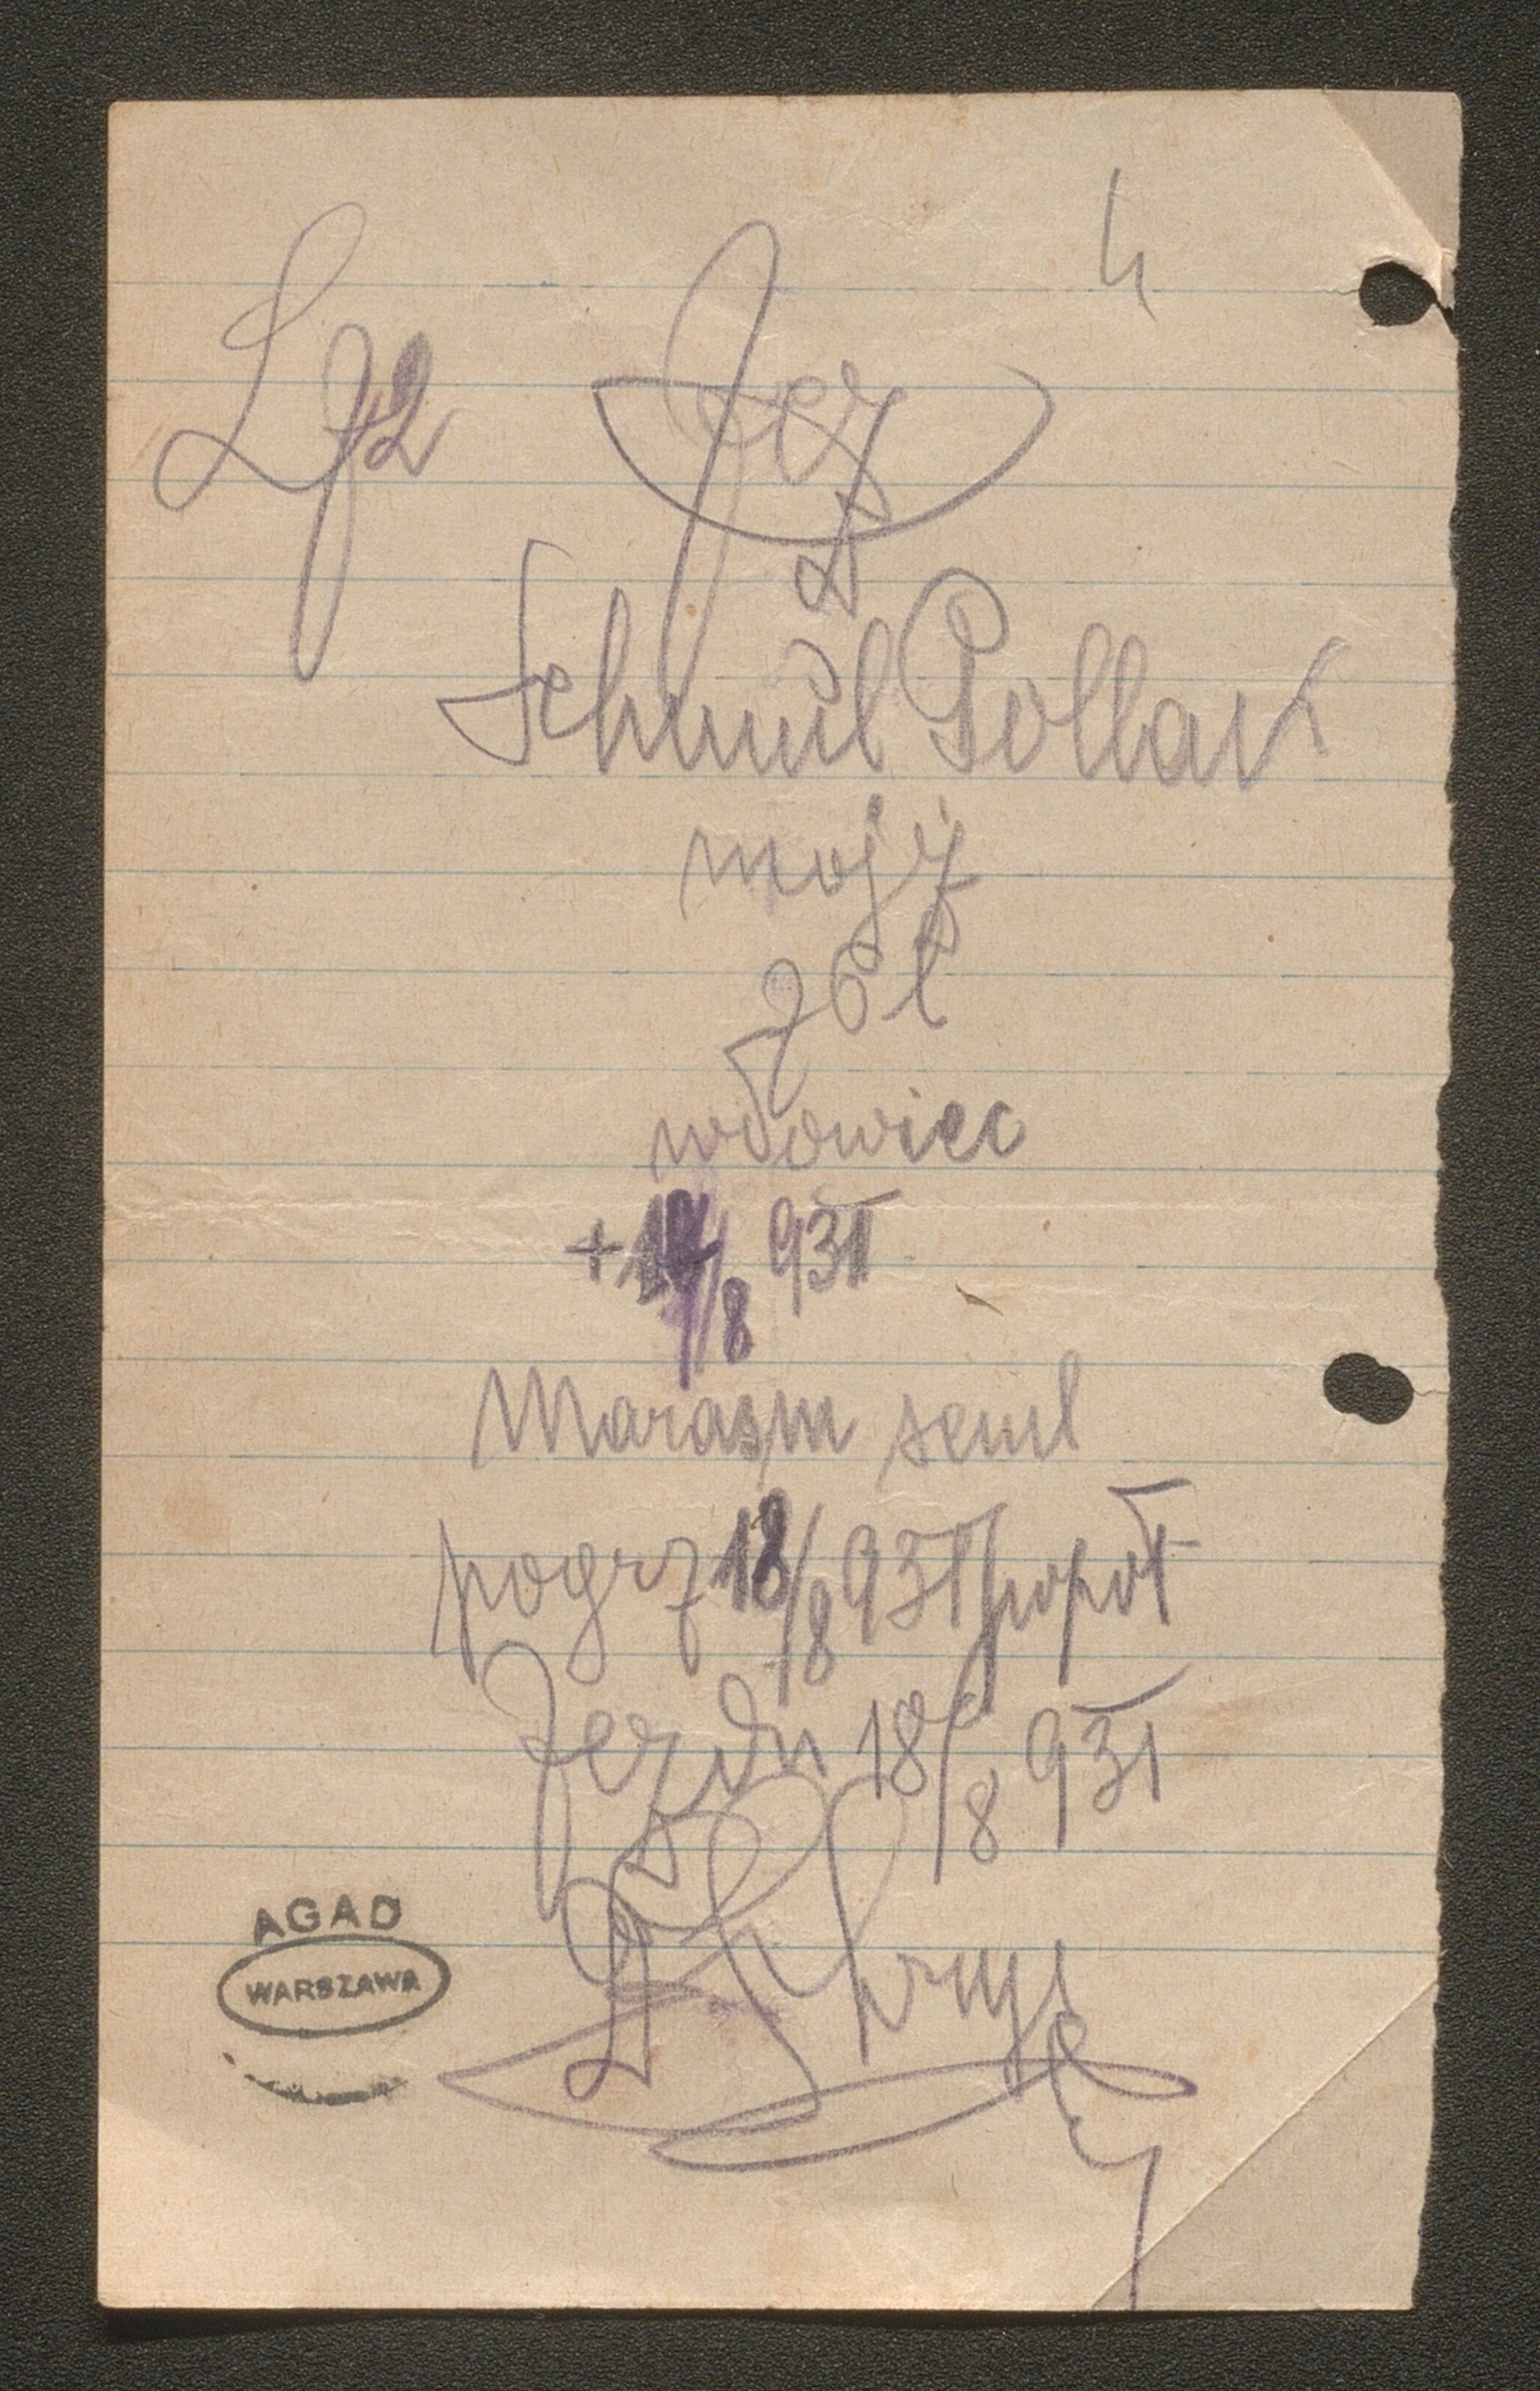 4
L 72
Jez
Schmul Pollak
mojż
76 l
wdowiec
+ 17/8 931
Marasm senil
pogrz 18/8 931 popoł
Jez dn 18/8 931
AGAD
WARSZAWA